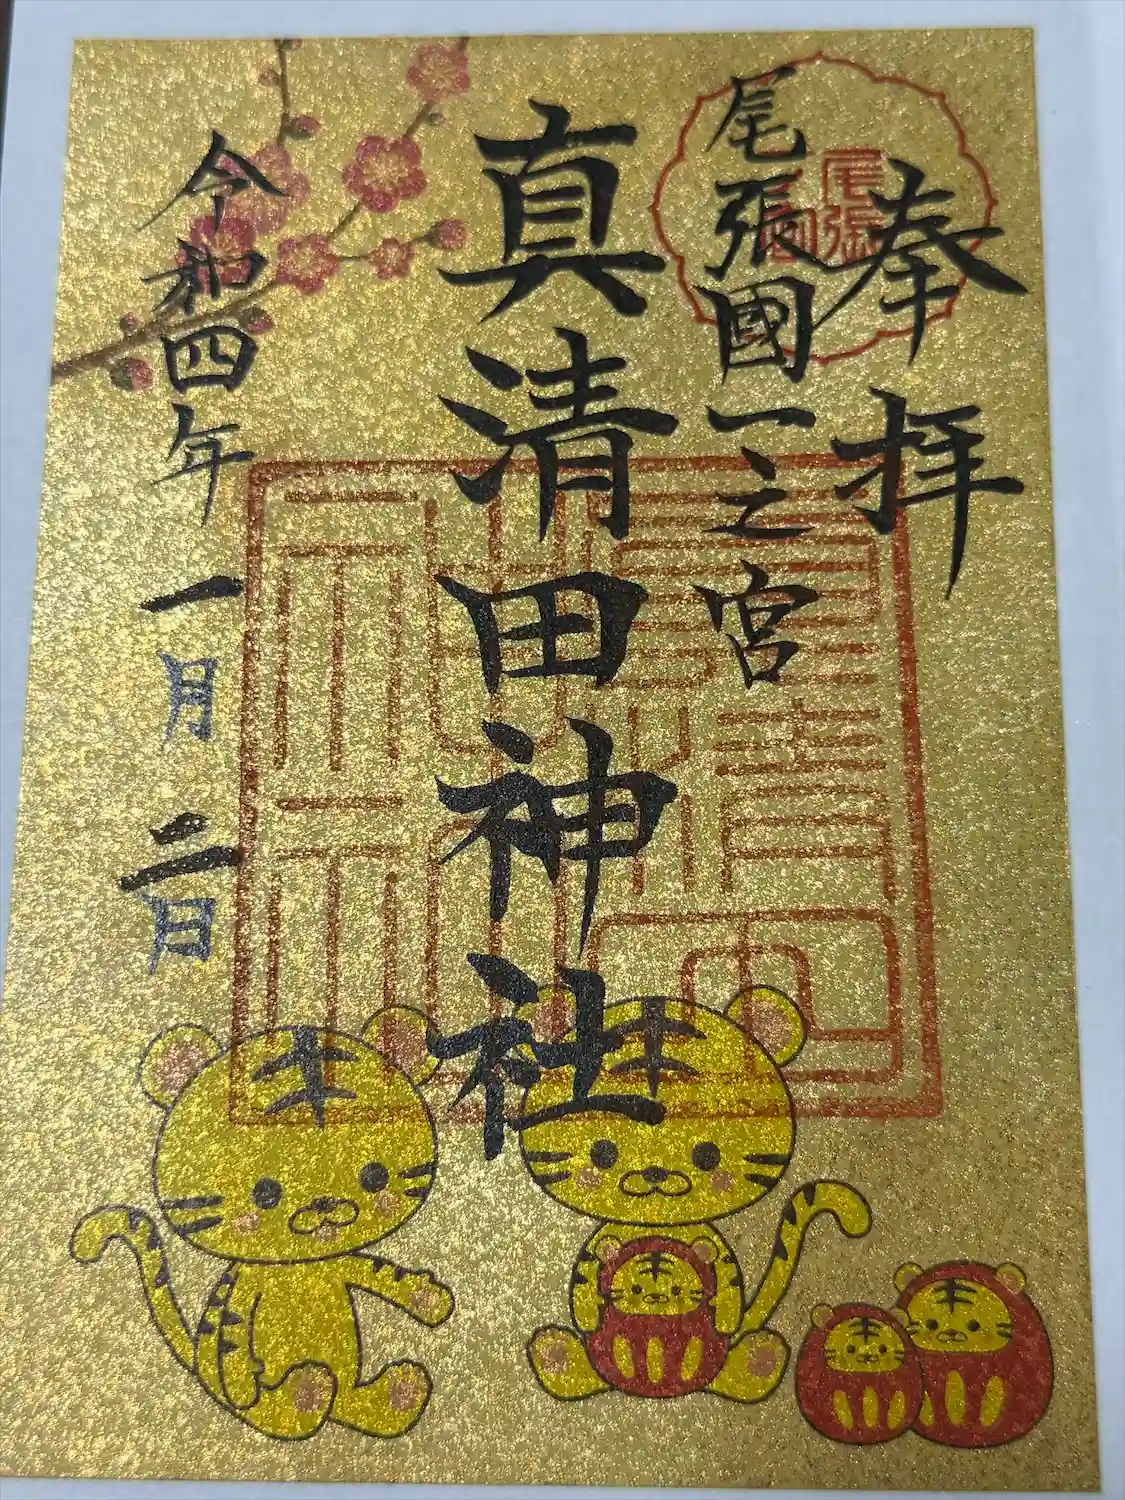 奉拝
尾張國一之宮
尾張
真清田神社
令和四年一月二日